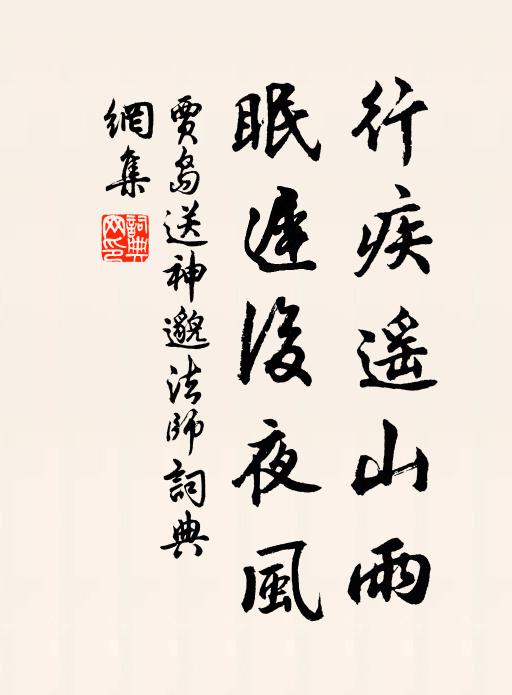 行疾遥山雨
眠遲後夜風
賈島送神邈法師詞典
網集
詞典網印